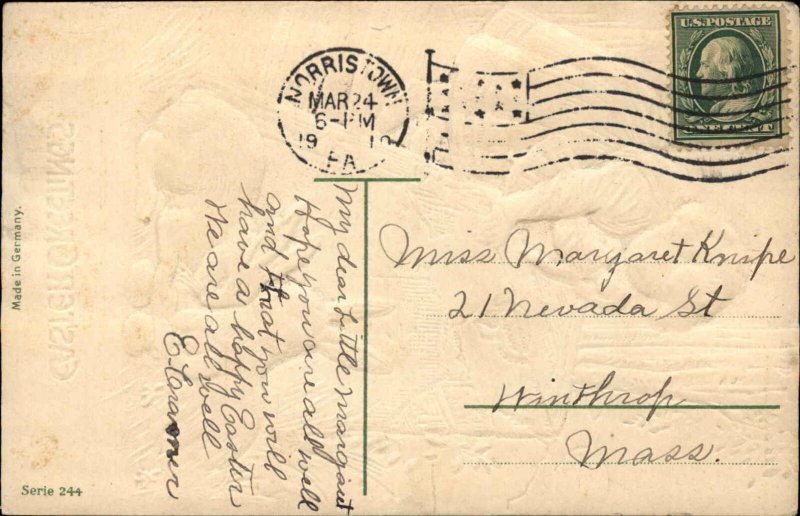 NORRISTOWN
MAR 24
6-PM
1910
PA
U.S. POSTAGE
ONE CENT
My dear Little Margaret
Hope you are all well
and that you will
have a happy Easter
We are all well
Miss Margaret Knipe
21 Nevada St
Winthrop
Mass.
Made in Germany.
Serie 244
EASTER GREETINGS